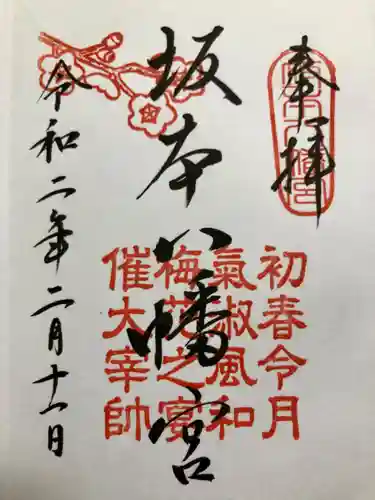 奉拝
坂本八幡宮
令和二年二月十一日
初春令月
氣淑風和
梅花之宴
催大宰帥